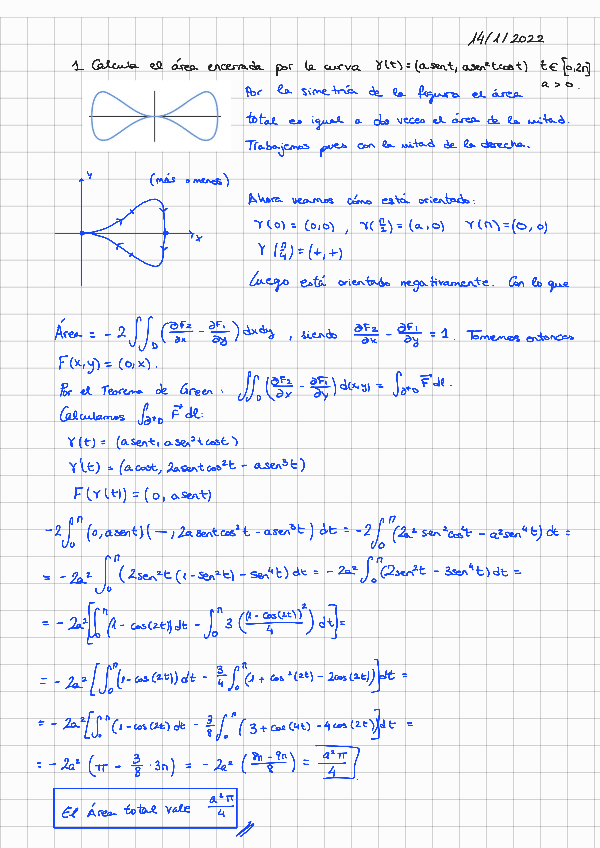 14/11/2022
1 Calcula el área encerrada por la curva γ(t)=(a sent, a sen²t cost) t∈[0,2π]
a>0.
Por la simetría de la figura el área
total es igual a dos veces el área de la mitad.
Trabajemos pues con la mitad de la derecha.
y
(más o menos)
x
Ahora veamos cómo está orientado:
γ(0)=(0,0) , γ(π/2)=(a,0) γ(π)=(0,0)
γ(π/4)=(+,+)
Luego está orientado negativamente. Con lo que
Área = -2∬_D (∂F₂/∂x - ∂F₁/∂y) dxdy , siendo ∂F₂/∂x - ∂F₁/∂y = 1. Tomemos entonces
F(x,y)=(0,x).
Por el Teorema de Green: ∬_D (∂F₂/∂x - ∂F₁/∂y) d(x,y) = ∫_∂⁺D F⃗ dl.
Calculamos ∫_∂⁺D F⃗ dl:
γ(t) = (a sent, a sen²t cost)
γ'(t) = (a cost, 2a sent cos²t - a sen³t)
F(γ(t)) = (0, a sent)
-2∫₀^π (0, a sent)(—, 2a sent cos²t - a sen³t) dt = -2∫₀^π (2a² sen²cos²t - a² sen⁴t) dt =
= -2a² ∫₀^π (2sen²t (1-sen²t) - sen⁴t) dt = -2a² ∫₀^π (2sen²t - 3sen⁴t) dt =
= -2a² [∫₀^π (1-cos(2t)) dt - ∫₀^π 3 ((1-cos(2t))²/4) dt] =
= -2a² [∫₀^π (1-cos(2t)) dt - 3/4 ∫₀^π (1+cos²(2t) - 2cos(2t))] dt =
= -2a² [∫₀^π (1-cos(2t) dt - 3/8 ∫₀^π (3+cos(4t) - 4cos(2t))] dt =
= -2a² (π - 3/8 · 3π) = -2a² (8π-9π/8) = a²π/4
El Área total vale a²π/4